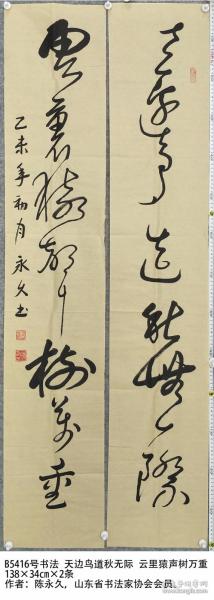 天边鸟道秋无际
云里猿声树万重
乙未年初月 永久书
B5416号书法 天边鸟道秋无际 云里猿声树万重
138×34cm×2条
作者：陈永久，山东省书法家协会会员。